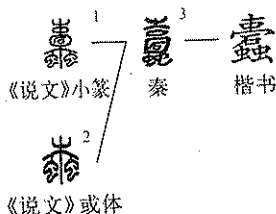 1 3
蠹
《说文》小篆 秦 楷书
2
《说文》或体